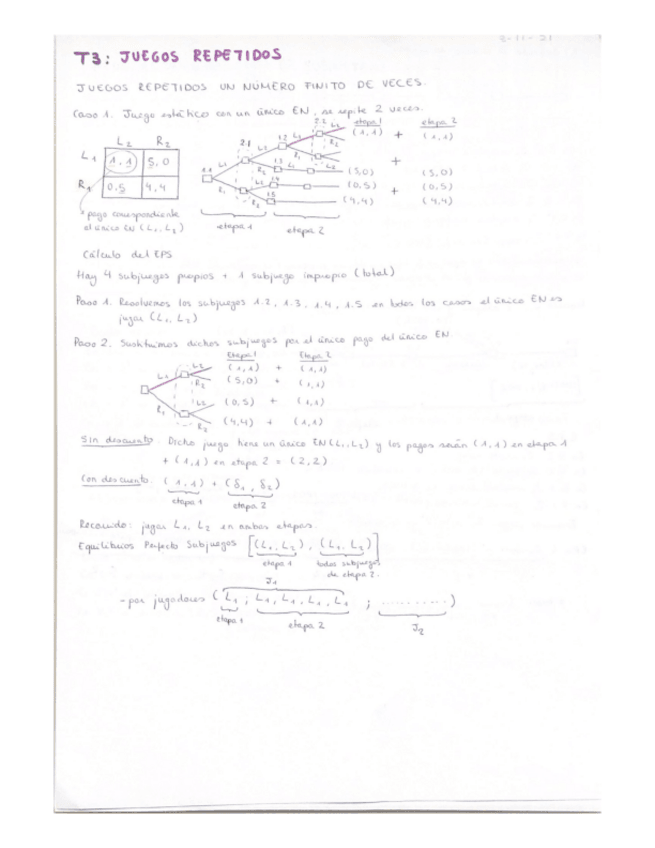 T3: JUEGOS REPETIDOS
JUEGOS REPETIDOS UN NÚMERO FINITO DE VECES.
Caso 1. Juego estático con un único EN, se repite 2 veces.
L2 R2
L1 1,1 5,0
R1 0,5 4,4
pago correspondiente
al único EN (L1, L2)
etapa 1 etapa 2
(1,1) + (1,1)
+
(5,0) (5,0)
(0,5) + (0,5)
(4,4) (4,4)
etapa 1 etapa 2
Cálculo del EPS
Hay 4 subjuegos propios + 1 subjuego impropio (total)
Paso 1. Resolvemos los subjuegos 1.2, 1.3, 1.4, 1.5 en todos los casos el único EN es
jugar (L1, L2)
Paso 2. Sustituimos dichos subjuegos por el único pago del único EN.
Etapa 1 Etapa 2
(1,1) + (1,1)
(5,0) + (1,1)
(0,5) + (1,1)
(4,4) + (1,1)
L1 R1 L2 R2 L2 R2
Sin descuento. Dicho juego tiene un único EN (L1, L2) y los pagos serán (1,1) en etapa 1
+ (1,1) en etapa 2 = (2,2)
Con descuento. (1,1) + (δ1, δ2)
etapa 1 etapa 2
Recorrido: jugar L1, L2 en ambas etapas.
Equilibrios Perfecto Subjuegos [(L1, L2), (L1, L2)]
etapa 1 todos subjuegos
de etapa 2.
J1
- por jugadores (L1; L1, L1, L1, L1 ; ..........)
etapa 1 etapa 2 J2